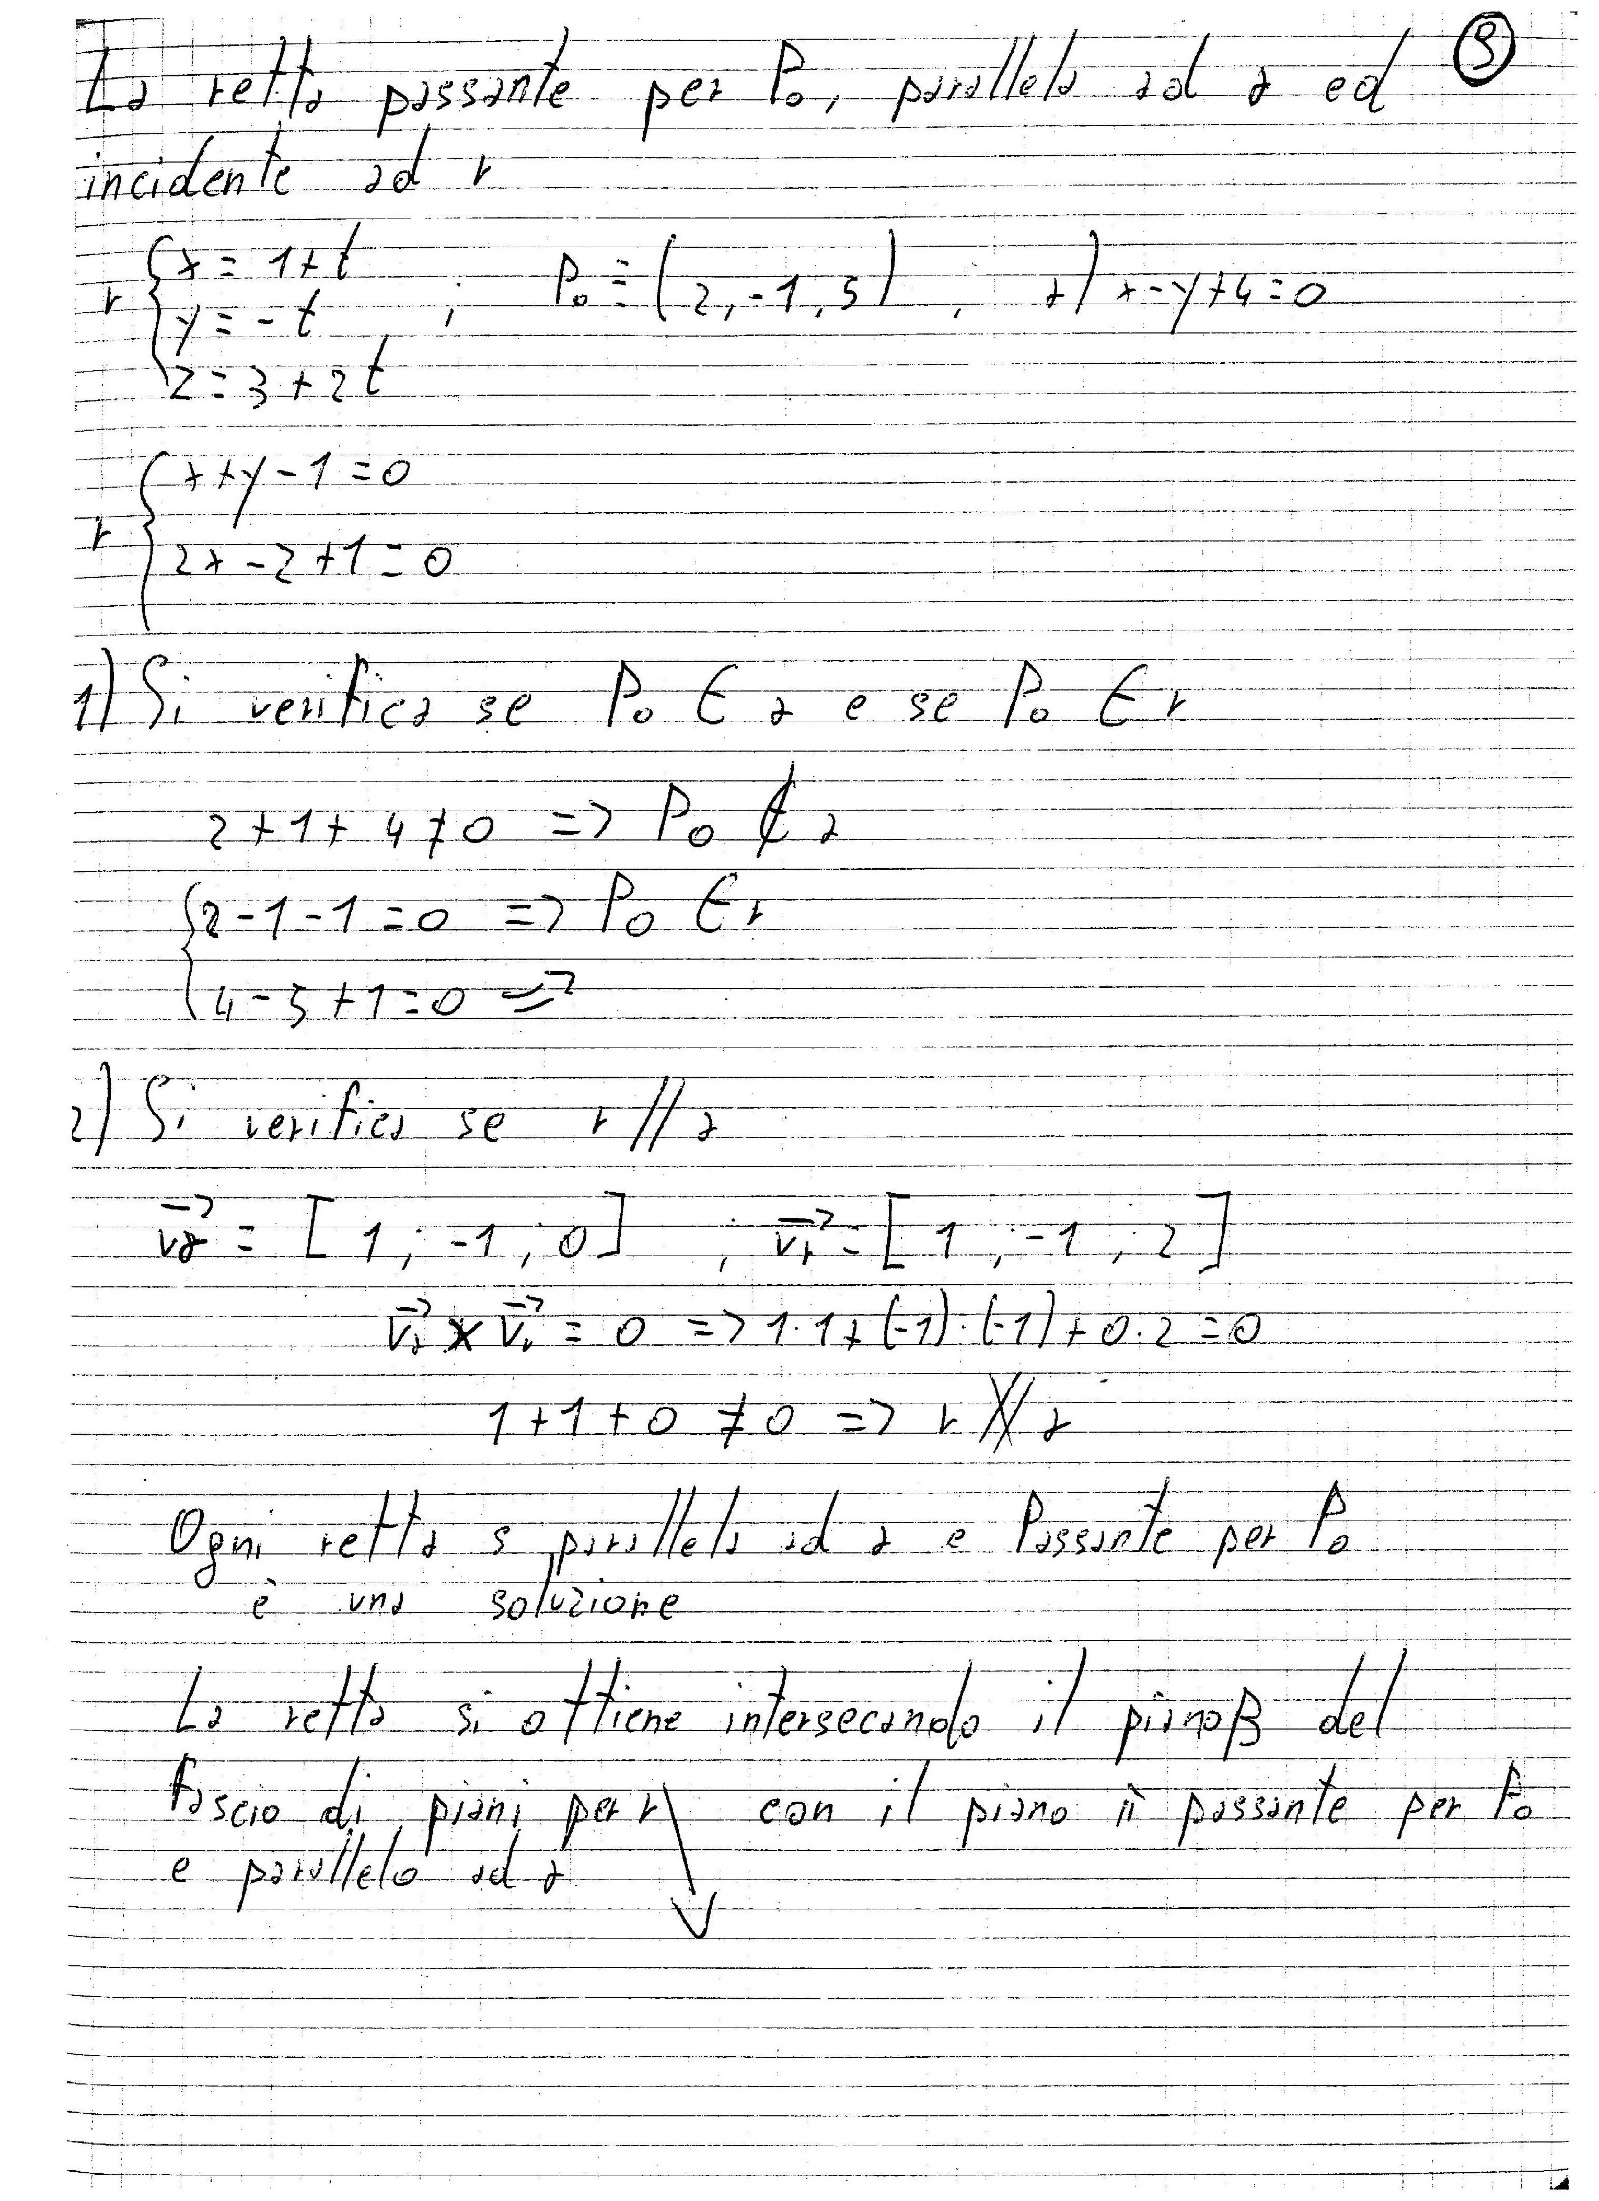 La retta passante per P₀, parallela ad α ed ⑨
incidente ad r
r { x = 1+t
y = -t ; P₀ ≡ (2, -1, 5) , α) x-y+4=0
z = 3+2t
r { x+y-1=0
2x-z+1=0
1) Si verifica se P₀ ∈ α e se P₀ ∈ r
2+1+4≠0 => P₀ ∉ α
{ 2-1-1=0 => P₀ ∈ r
4-5+1=0 =>
2) Si verifica se r // α
vα = [1; -1; 0] ; vr = [1; -1; 2]
vα × vr = 0 => 1·1+(-1)·(-1)+0·2=0
1+1+0 ≠ 0 => r ∦ α
Ogni retta s parallela ad α e Passante per P₀
è una soluzione
La retta si ottiene intersecando il piano β del
fascio di piani per r con il piano π passante per P₀
e parallelo ad α